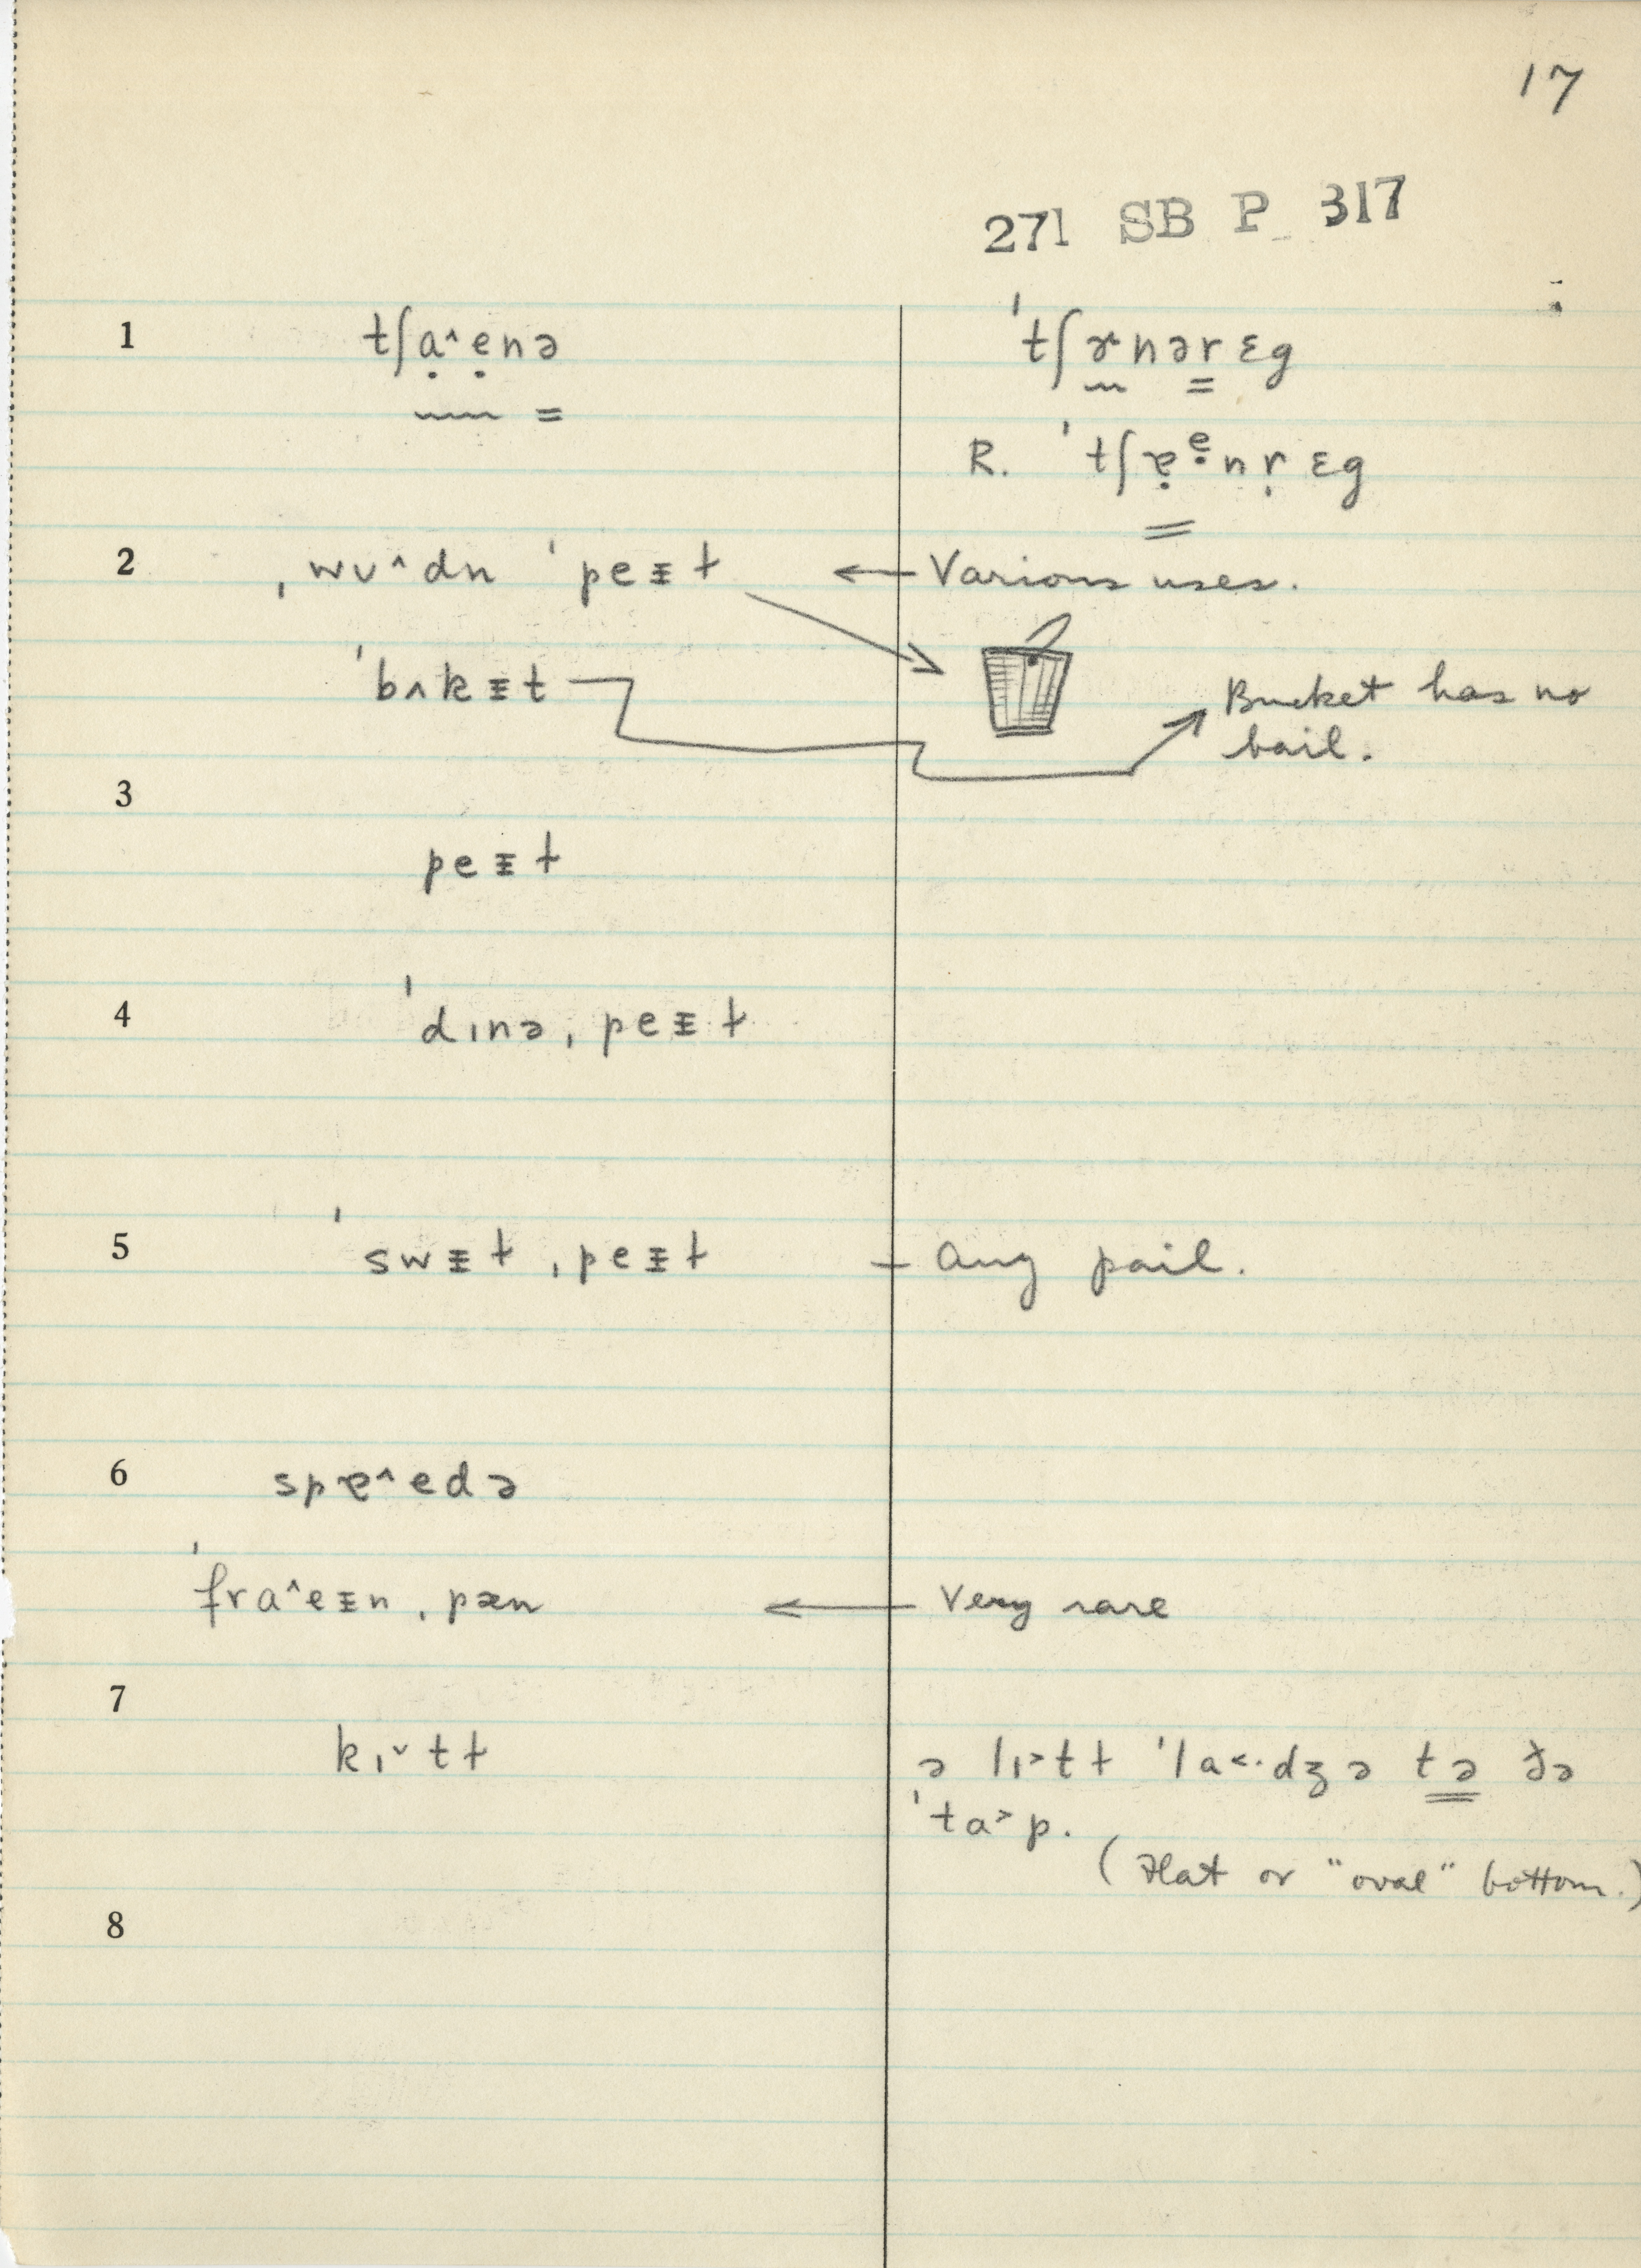 17
271 SB P 317
1 tʃạ^ẹnə 'tʃɤnərɛg
R. 'tʃɐ̣ᵉ̣nṛɛg
2 ˌwʊ^dn 'peᵻɫ ← Various uses.
'bʌkᵻt Bucket has no
bail.
3
peᵻɫ
4 'dɪnə ˌpeᵻɫ
5 'swᵻɫ ˌpeᵻɫ – Any pail.
6 spɐ^edə
'fra^eᵻn ˌpæn ← Very rare
7
kɪ˅tɫ ə lɪ˃tɫ 'la˂·dʒə tə ðə
'ta˃p.
(Flat or "oval" bottom.)
8